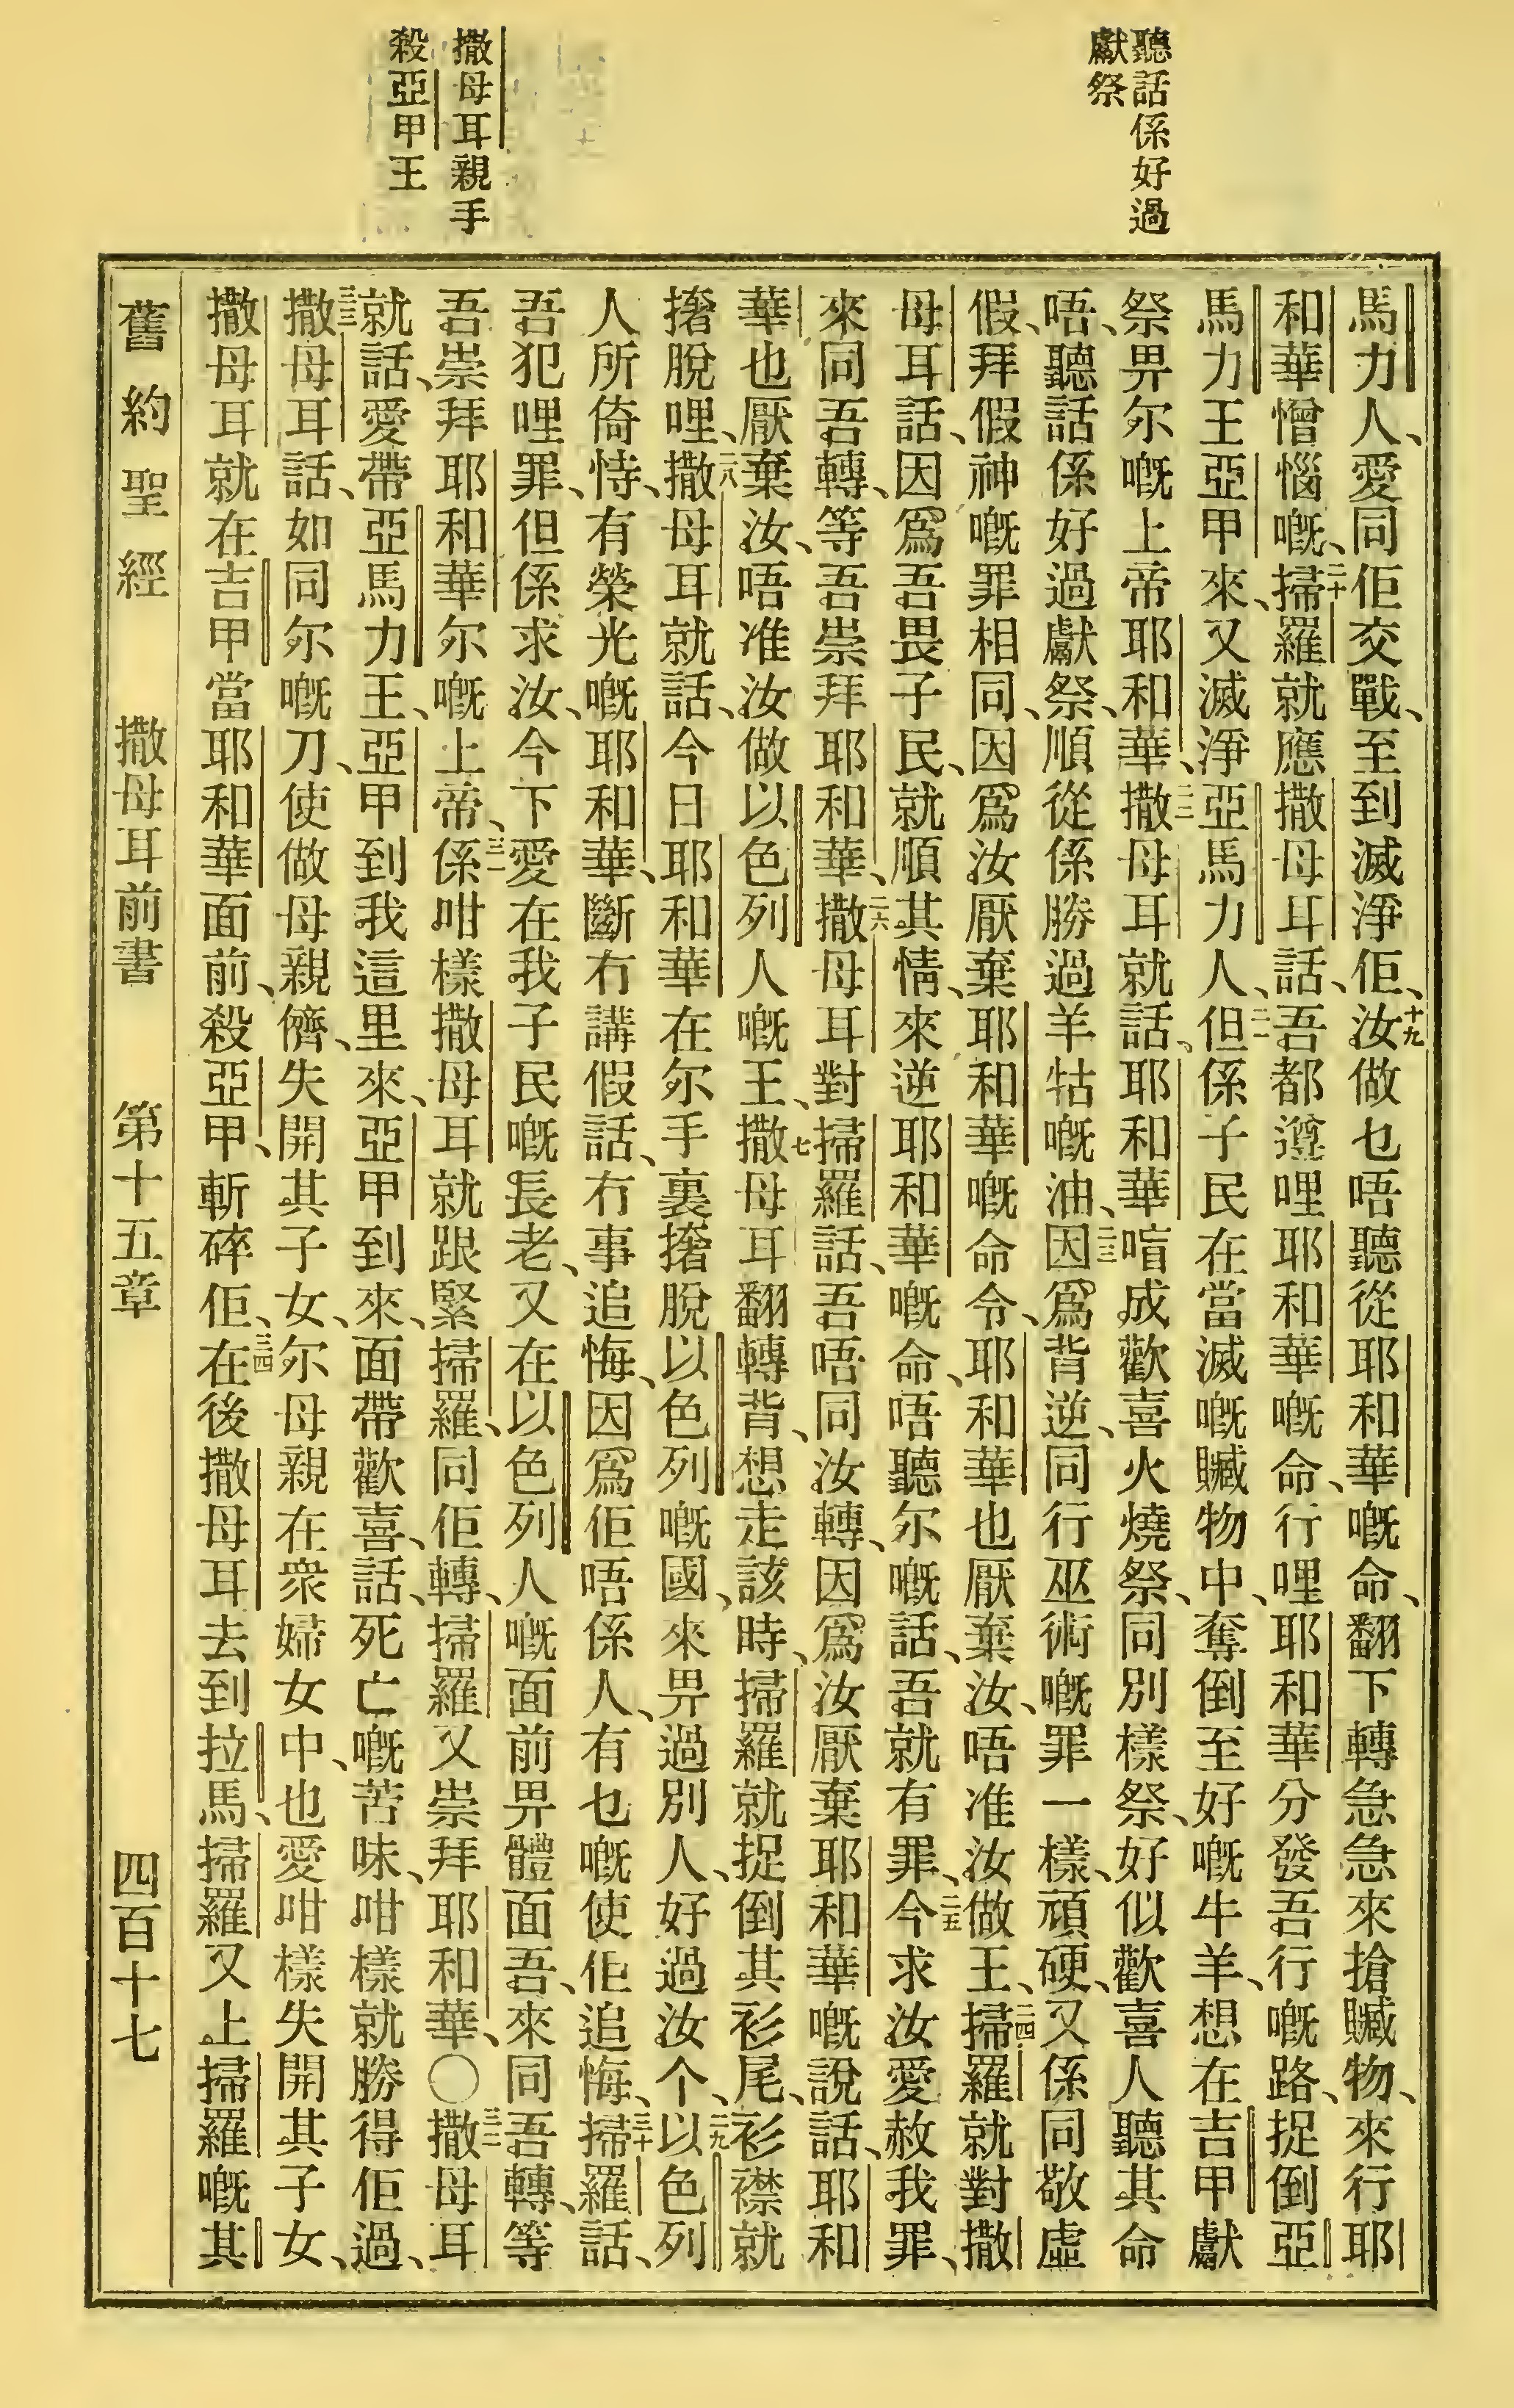 聽話係好過
獻祭
撒母耳親手
殺亞甲王
馬力人、愛同佢交戰、至到滅淨佢、十九汝做乜唔聽從耶和華嘅命、翻下轉急急來搶贓物、來行耶
和華憎惱嘅、二十掃羅就應撒母耳話、吾都遵哩耶和華嘅命、行哩耶和華分發吾行嘅路、捉倒亞
馬力王亞甲來、又滅淨亞馬力人、二一但係子民在當滅嘅贓物中、奪倒至好嘅牛羊、想在吉甲獻
祭畀尔嘅上帝耶和華、二二撒母耳就話、耶和華喧成歡喜火燒祭、同別樣祭、好似歡喜人聽其命
唔、聽話係好過獻祭、順從係勝過羊牯嘅油、二三因爲背逆、同行巫術嘅罪一樣、頑硬、又係同敬虛
假、拜假神嘅罪相同、因爲汝厭棄耶和華嘅命令、耶和華也厭棄汝、唔准汝做王、二四掃羅就對撒
母耳話、因爲吾畏子民、就順其情、來逆耶和華嘅命、唔聽尔嘅話、吾就有罪、二五今求汝愛赦我罪、
來同吾轉、等吾崇拜耶和華、二六撒母耳對掃羅話、吾唔同汝轉、因爲汝厭棄耶和華嘅說話、耶和
華也厭棄汝、唔准汝做以色列人嘅王、七撒母耳翻轉背、想走該時、掃羅就捉倒其衫尾、衫襟就
撦脫哩、二八撒母耳就話、今日耶和華在尔手裏撦脫以色列嘅國、來畀過別人、好過汝个、二九以色列
人所倚恃、有榮光嘅耶和華、斷冇講假話、冇事追悔、因爲佢唔係人、有乜嘅使佢追悔、三十掃羅話、
吾犯哩罪、但係求汝、今下愛在我子民嘅長老、又在以色列人嘅面前畀體面吾、來同吾轉、等
吾崇拜耶和華尔嘅上帝、三一係咁樣撒母耳就跟緊掃羅、同佢轉、掃羅又崇拜耶和華、〇三二撒母耳
就話、愛帶亞馬力王、亞甲到我這里來、亞甲到來、面帶歡喜、話、死亡嘅苦味、咁樣就勝得佢過、
三三撒母耳話、如同尔嘅刀、使做母親儕、失開其子女、尔母親在衆婦女中、也愛咁樣失開其子女、
撒母耳就在吉甲當耶和華面前、殺亞甲、斬碎佢、三四在後撒母耳去到拉馬、掃羅又上掃羅嘅其
舊約聖經　撒母耳前書　第十五章　四百十七